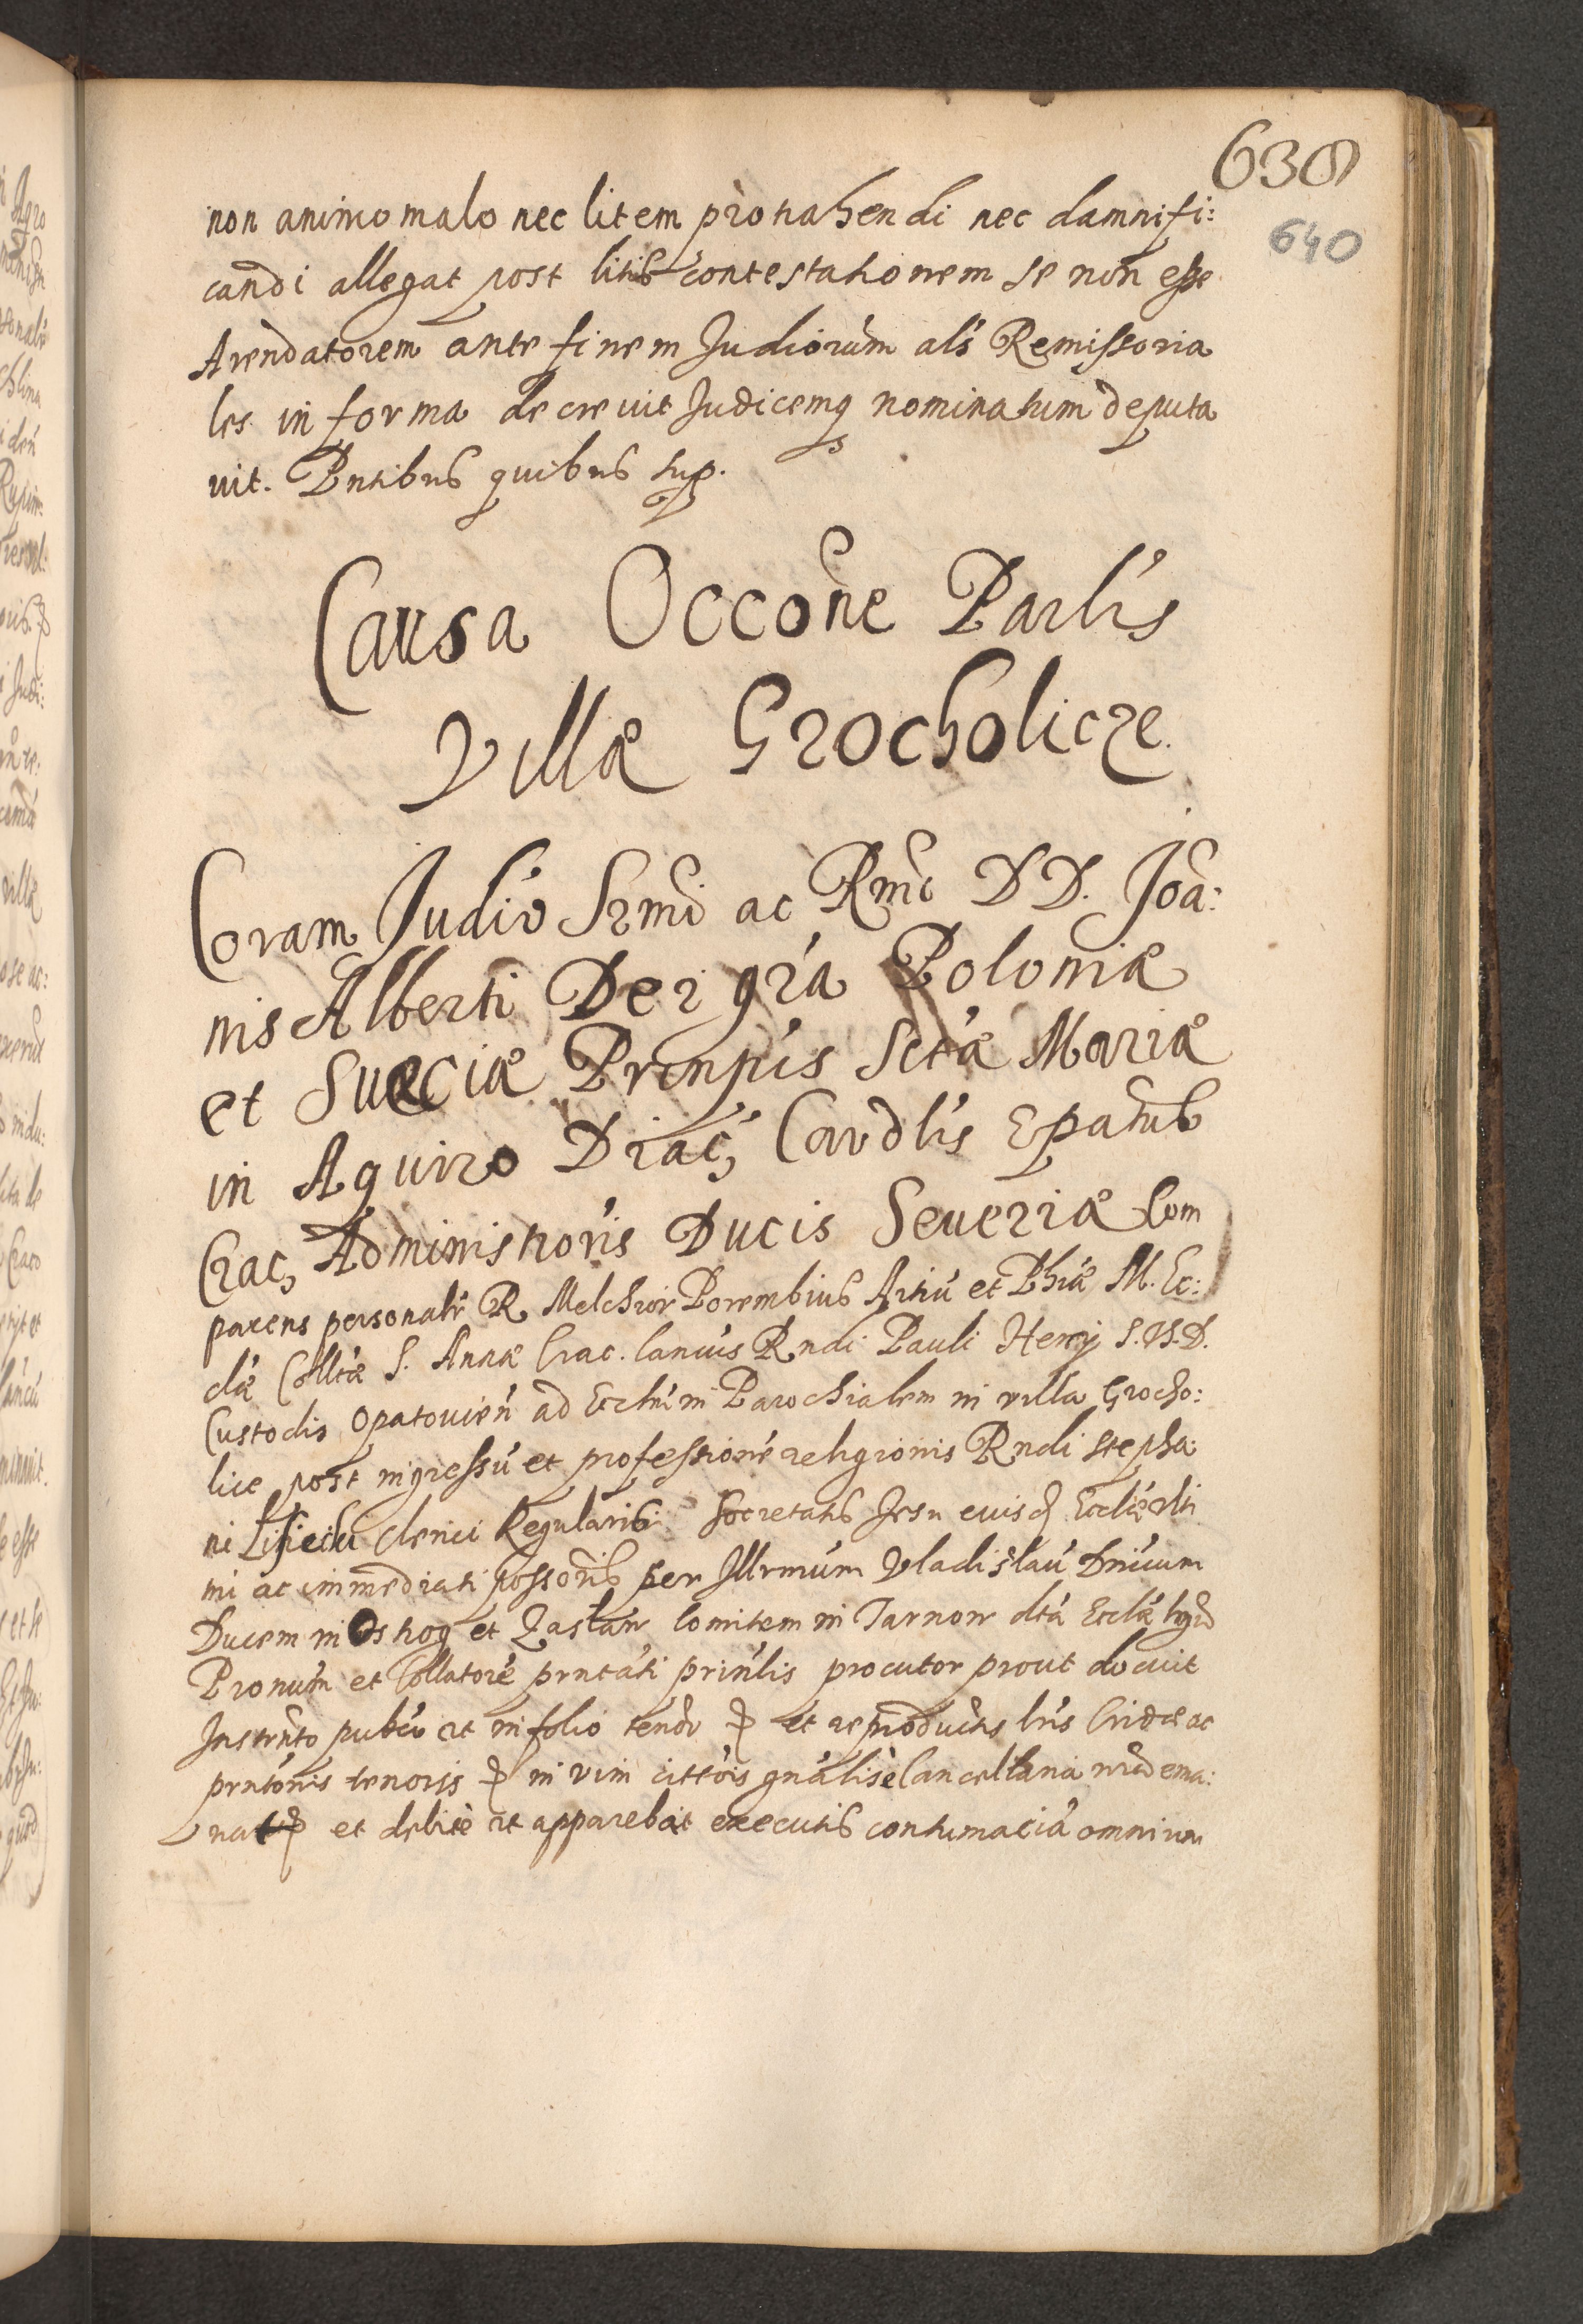 638
640
non animo malo nec litem protrahendi nec damnifi:
candi allegat post litis contestationem se non esse
Arendatorem ante finem Judiorum als Remissoria
les in forma decrevit Judicemq nominatum deputa
vit. Pntibus quibus sup.
Causa Occone Parlis
Villæ Grocholicze.
Coram Judio Srmi ac Rmi D D. Joa:
nis Alberti Dei gra Poloniæ
et Sueciæ Prinpis Sctæ Mariæ
in Aquiro Diac, Cardlis Epatus
Crac, Administroris Ducis Severiæ Com
parens personalr R. Melchior Porembius Artiu et Phiæ M. Ec:
clæ Colltæ S. Annæ Crac. Canius Rndi Pauli Hercij S.Th.D.
Custodis Opatovien ad Ecclim Parochialem in villa Grocho:
lice post ingressu et professione religionis Rndi Stepha
ni Clerici Regularis Societatis Jesu eiusd Ecclæ ulti
mi ac immediati possoris per Illrmum Vladislau Dnicum
Ducem in Ostrog et Zaslaw Comitem in Tarnow dtæ Ecclæ
Pronum et Collatore prntati prinlis procutor prout docuit
Instrnto publio et in folio tendo et reproductis lris Cridæ ac
prntonis tenoris in vim cittois gnalis è Cancellaria ema:
nat et debite ut apparebat executis contumacia omnium